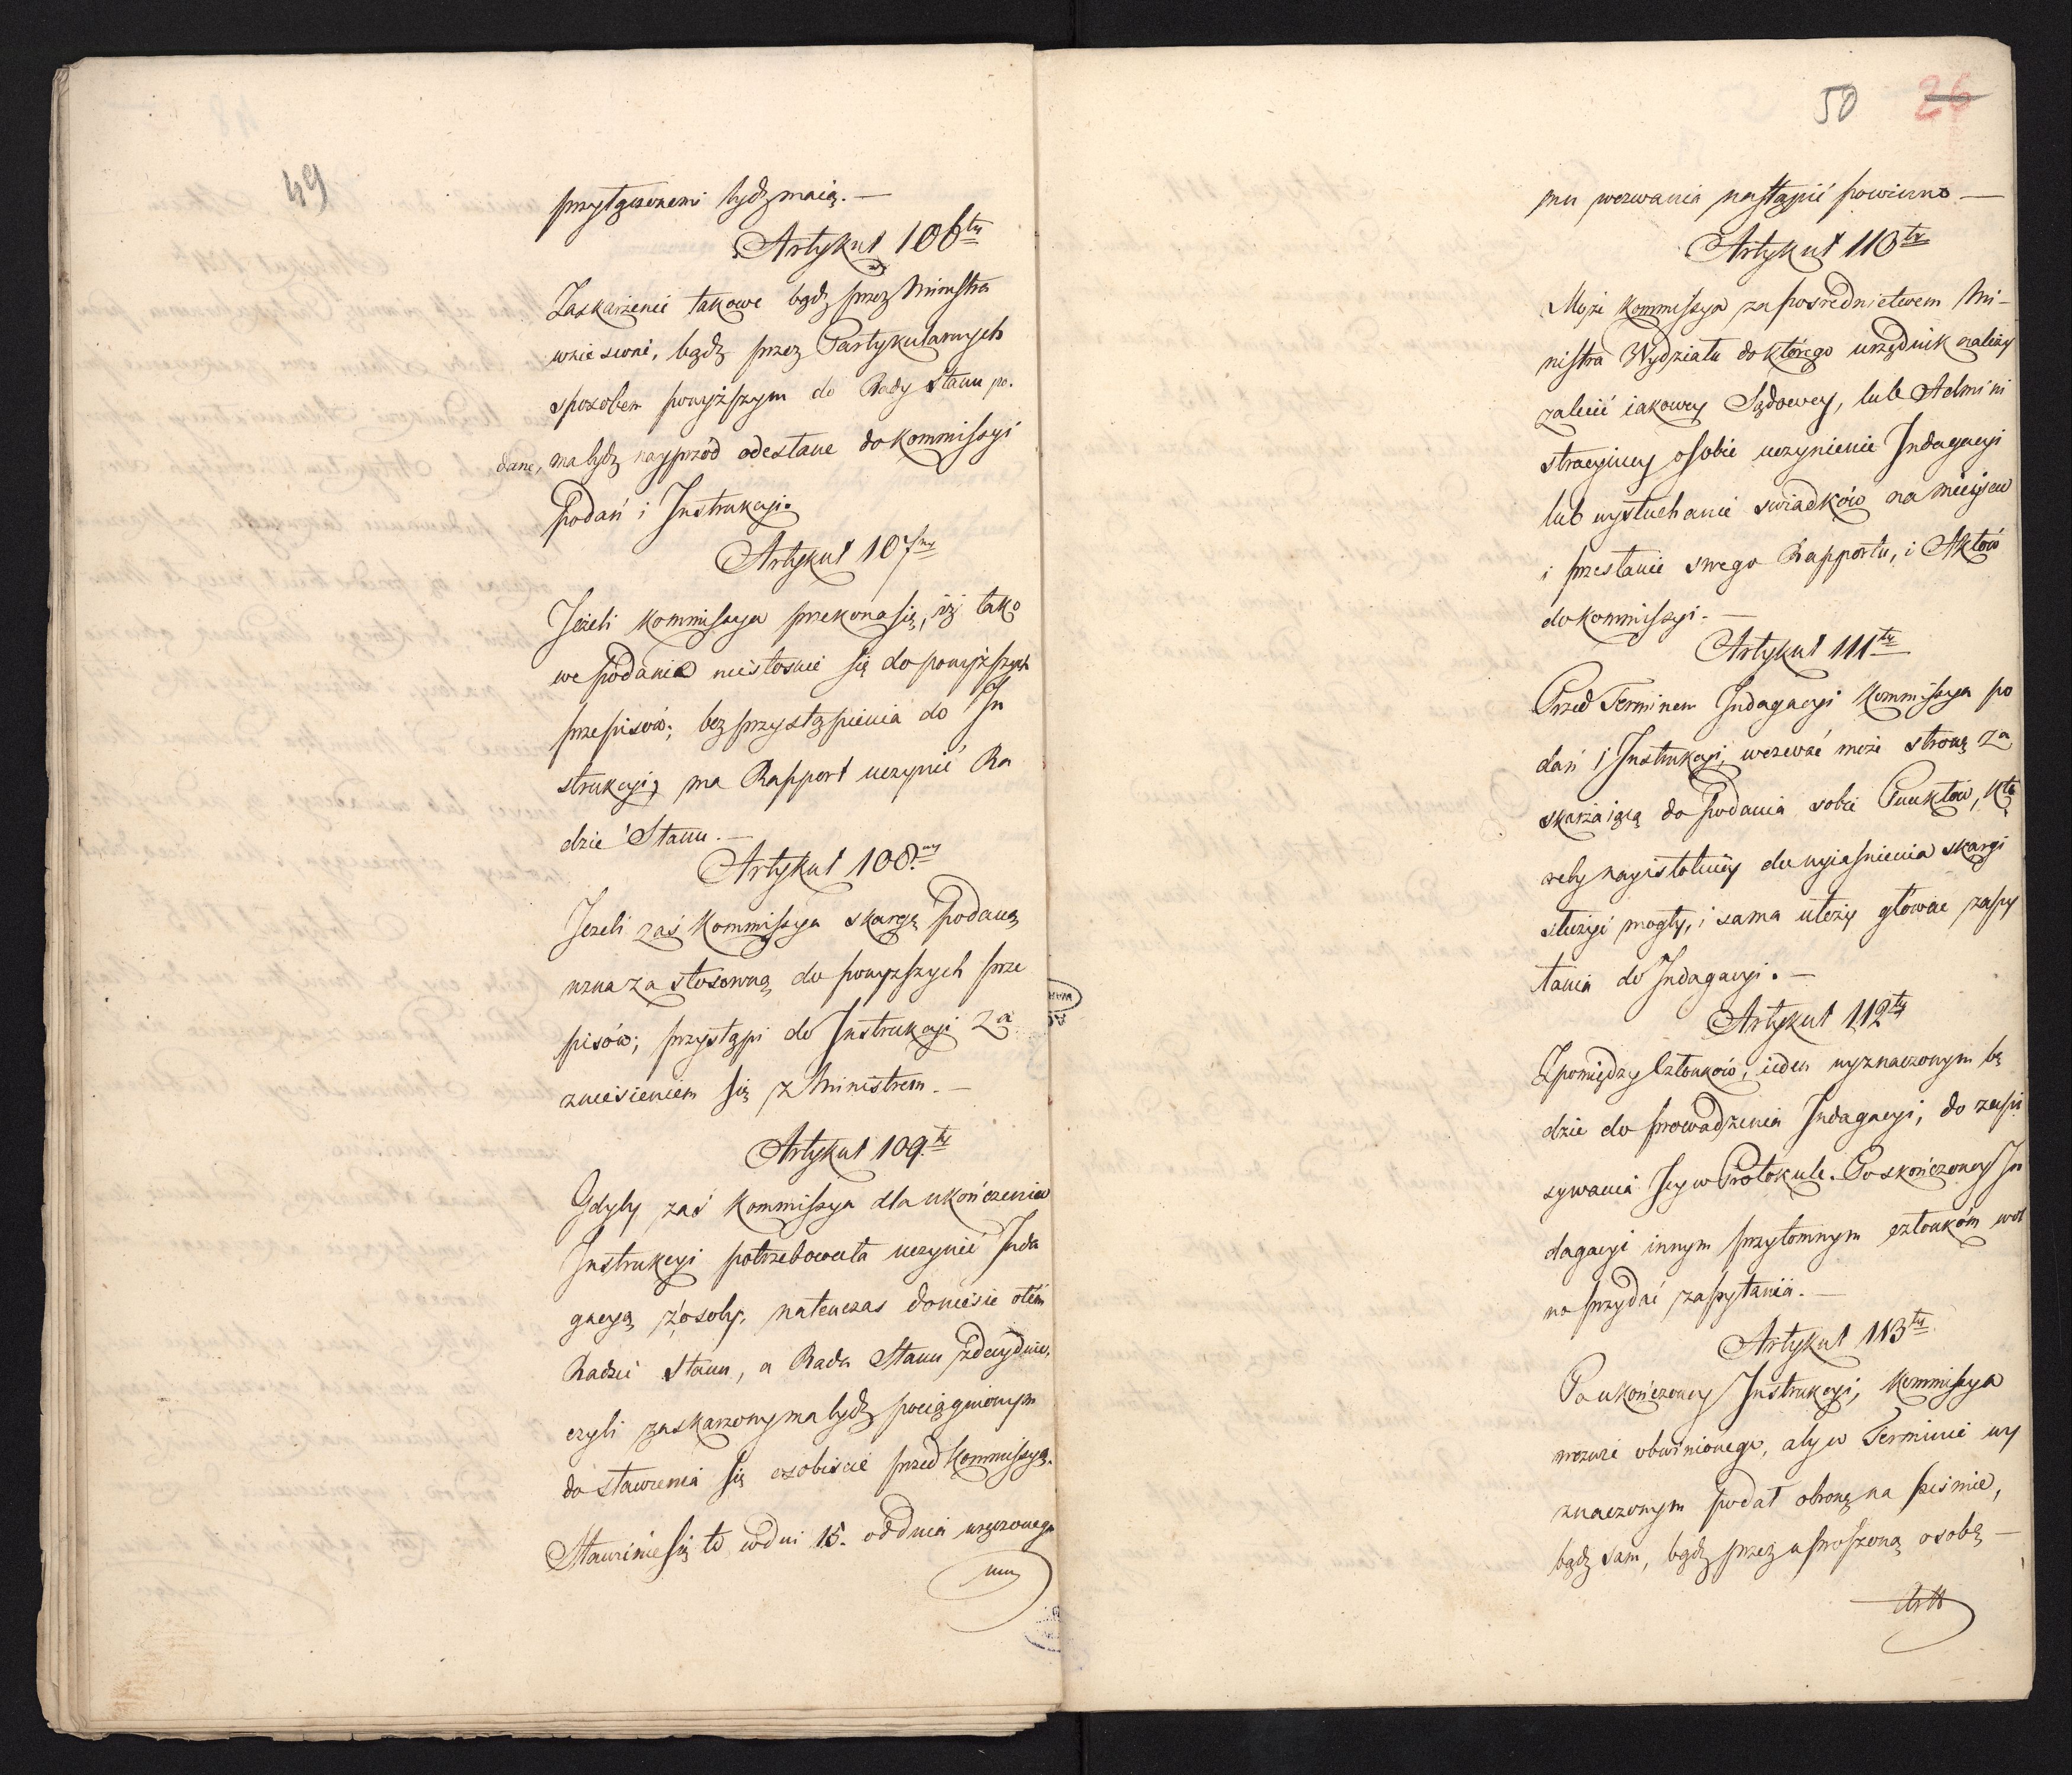 49
przyłączonemi bydź maią. —
Artykuł 106ty
Zaskarżenie takowe bądź przez Ministra
wniesione, bądź przez Partykularnych
sposobem powyższym do Rady Stanu po-
dane, ma bydź nayprzód odesłane do Kommissyi
Podań i Instrukcyi.
Artykuł 107my
Jeżeli Kommissya przekona się, iż tako
we podanie niestosuie się do powyższych
przepisów; bez przystąpienia do In
strukcyi, ma Rapport uczynić Ra
dzie Stanu. —
Artykuł 108my
Jeżeli zaś Kommissya skargę podaną
uzna za stosowną do powyższych prze
pisów; przystąpi do Instrukcyi za
zniesieniem się z Ministrem. —
Artykuł 109ty
Gdyby zaś Kommissya dla ukończenia
Instrukcyi potrzebowała uczynić Inda
gacyą z osoby, natenczas doniesie otém
Radzie Stanu, a Rada Stanu zdecyduie,
czyli zaskarżony ma bydź pociągnionym
do stawienia się osobiście przed Kommissyą.
Stawienie się to w dni 15. od dnia uręczonego
mu
50 26
mu wezwania nastąpić powinno —
Artykuł 110ty
Może Kommissya za pośrednictwem Mi-
nistra Wydziału do którego urzędnik należy
zalecić iakowey Sądowey, lub Admini
stracyiney osobie uczynienie Indagacyi
lub wysłuchanie świadków na mieyscu
i przesłanie swego Rapportu, i Aktów
do Kommissyi. —
Artykuł 111ty
Przed Terminem Indagacyi Kommissya po
dań i Instrukcyi, wezwać może stronę za
skarżaiącą do podania sobie Punktów, któ
reby nayistotniey do wyiaśnienia skargi
służyć mogły, i sama ułoży główne zapy
tania do Indagacyi. —
Artykuł 112ty
Zpomiędzy Członków, ieden wyznaczonym bę
dzie do prowadzenia Indagacyi, do zapi
sywania Jey w Protokule. Po skończoney In
dagacyi innym przytomnym członkóm wol
no przydać zapytania. —
Artykuł 113ty
Po ukończoney Instrukcyi, Kommissya
wezwie obwinionego, aby w Terminie wy
znaczonym podał obronę na piśmie,
bądź sam, bądź przez uproszoną osobę —
Artt